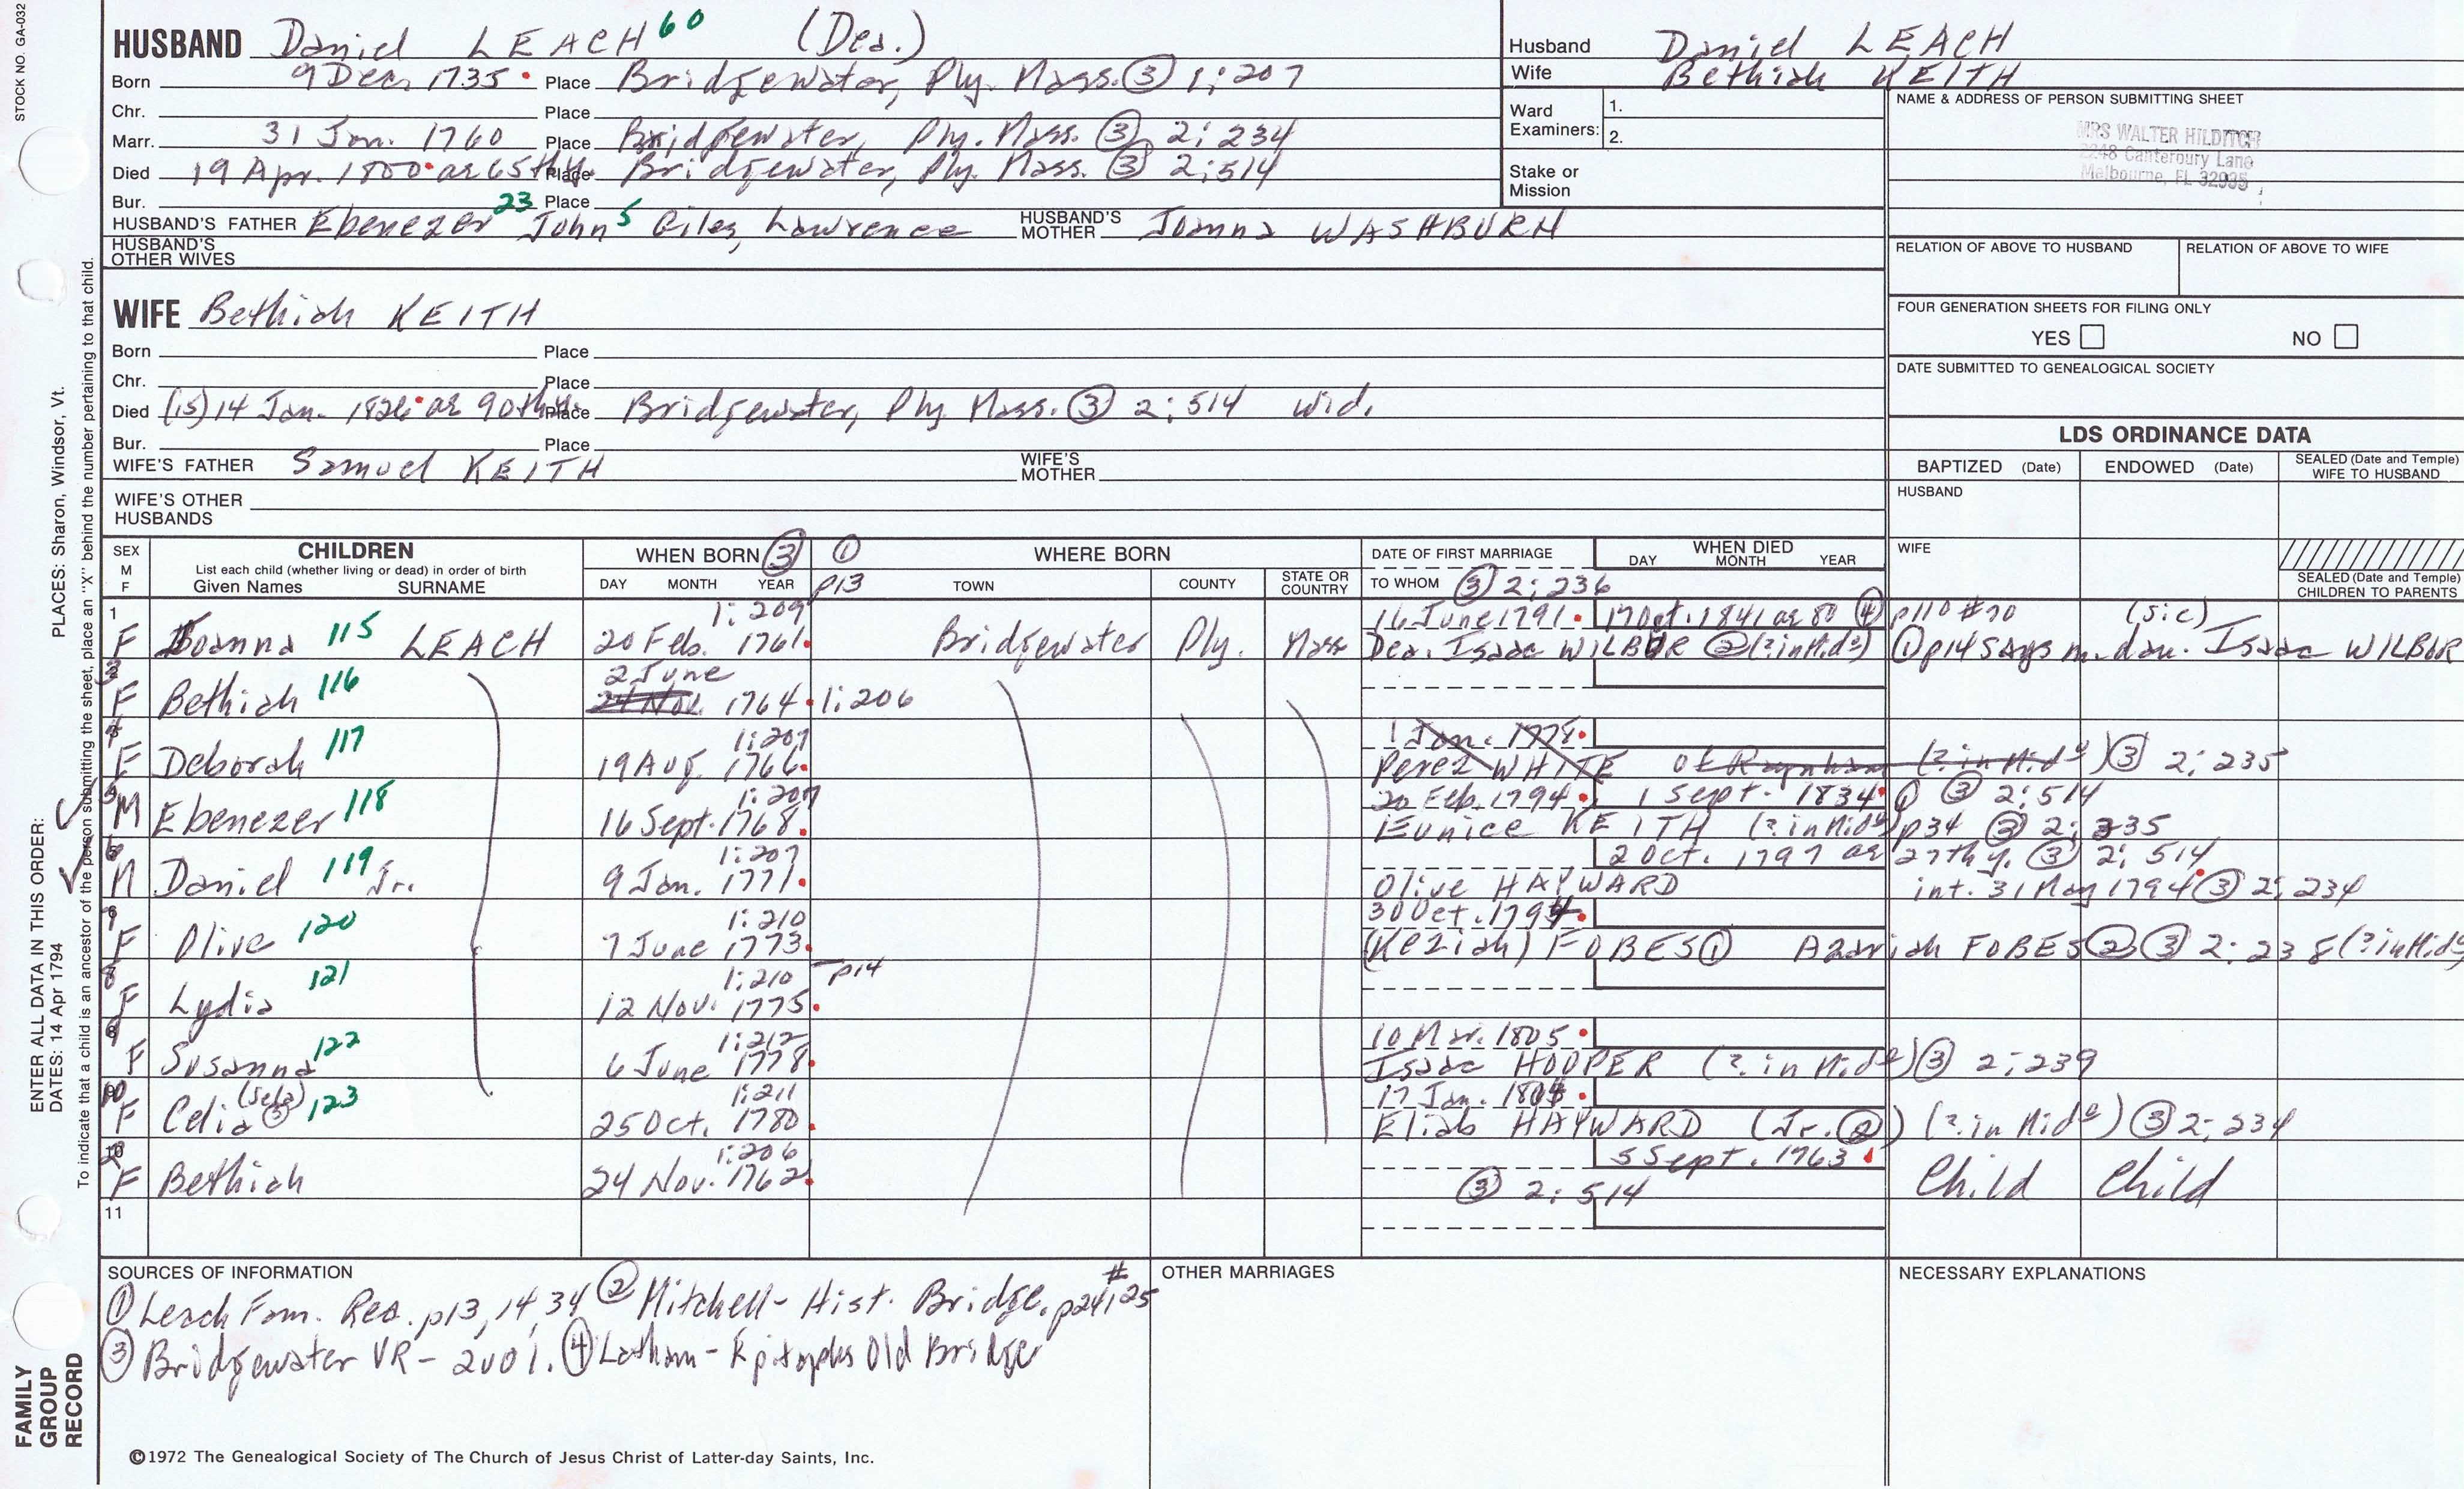 STOCK NO. GA-032
HUSBAND Daniel LEACH 60 (Dea.)
Born 9 Dec. 1735 Place Bridgewater, Ply. Mass. ③ 1:207
Chr. Place
Marr. 31 Jan. 1760 Place Bridgewater, Ply. Mass. ③ 2:234
Died 19 Apr. 1800 ae 65th y. Place Bridgewater, Ply. Mass. ③ 2:514
Bur. Place
HUSBAND'S FATHER Ebenezer 23 John 5 Giles, Lawrence HUSBAND'S MOTHER Joanna WASHBURN
HUSBAND'S OTHER WIVES
Husband Daniel LEACH
Wife Bethiah KEITH
Ward Examiners: 1.
2.
Stake or Mission
NAME & ADDRESS OF PERSON SUBMITTING SHEET
MRS WALTER HILDITCH
2248 Canterbury Lane
Melbourne, FL 32935
RELATION OF ABOVE TO HUSBAND RELATION OF ABOVE TO WIFE
FOUR GENERATION SHEETS FOR FILING ONLY
YES NO
DATE SUBMITTED TO GENEALOGICAL SOCIETY
WIFE Bethiah KEITH
Born Place
Chr. Place
Died (15) 14 Jan. 1826 ae 90th y. Place Bridgewater, Ply Mass. ③ 2:514 wid.
Bur. Place
WIFE'S FATHER Samuel KEITH WIFE'S MOTHER
WIFE'S OTHER HUSBANDS
LDS ORDINANCE DATA
BAPTIZED (Date) ENDOWED (Date) SEALED (Date and Temple) WIFE TO HUSBAND
HUSBAND
WIFE
SEALED (Date and Temple) CHILDREN TO PARENTS
SEX M F
CHILDREN
List each child (whether living or dead) in order of birth
Given Names SURNAME
WHEN BORN ③ ① p13
DAY MONTH YEAR
WHERE BORN
TOWN COUNTY STATE OR COUNTRY
DATE OF FIRST MARRIAGE
TO WHOM ③ 2:236
WHEN DIED
DAY MONTH YEAR
1 1:209 16 June 1791 17 Oct. 1841 ae 80 ④ p110 #70 (sic)
F Joanna 115 LEACH 20 Feb. 1761 Bridgewater Ply. Mass Dea. Isaac WILBUR ② (? in Mid o) ① p14 says m. dau. Isaac WILBUR
2 June
3 F Bethiah 116 24 Nov. 1764 1:206
4 1:207 1 Jan. 1778
F Deborah 117 19 Aug. 1766 Perez WHITE of Raynham (? in Mid o) ③ 2:235
5 1:207 20 Feb. 1794 1 Sept. 1834 ① ③ 2:514
M Ebenezer 118 16 Sept. 1768 Eunice KEITH (? in Mid o) p34 ③ 2:235
6 1:207 2 Oct. 1797 ae 27th y. ③ 2:514
M Daniel 119 Jr. 9 Jan. 1771 Olive HAYWARD int. 31 May 1794 ③ 2:234
7 1:210 30 Oct. 1794
F Olive 120 7 June 1773 (Keziah) FOBES ① Azariah FOBES ② ③ 2:238 (? in Mid
8 1:210 p14
F Lydia 121 12 Nov. 1775
9 1:212 10 Mar. 1805
F Susanna 122 6 June 1778 Isaac HOOPER (? in Mid o) ③ 2:239
10 (Sela) ③ 1:211 17 Jan. 1804
F Celia 123 25 Oct. 1780 Eliab HAYWARD (Jr. ②) (? in Mid o) ③ 2:234
2 1:206 5 Sept. 1763
F Bethiah 24 Nov. 1762 ③ 2:514 Child Child
11
SOURCES OF INFORMATION
① Leach Fam. Rec. p13, 14, 34 ② Mitchell- Hist. Bridge. p241 #25
③ Bridgewater VR - 2vol. ④ Latham - Epitaphs Old Bridge
OTHER MARRIAGES
NECESSARY EXPLANATIONS
©1972 The Genealogical Society of The Church of Jesus Christ of Latter-day Saints, Inc.
FAMILY GROUP RECORD
ENTER ALL DATA IN THIS ORDER:
DATES: 14 Apr 1794 PLACES: Sharon, Windsor, Vt.
To indicate that a child is an ancestor of the person submitting the sheet, place an "X" behind the number pertaining to that child.